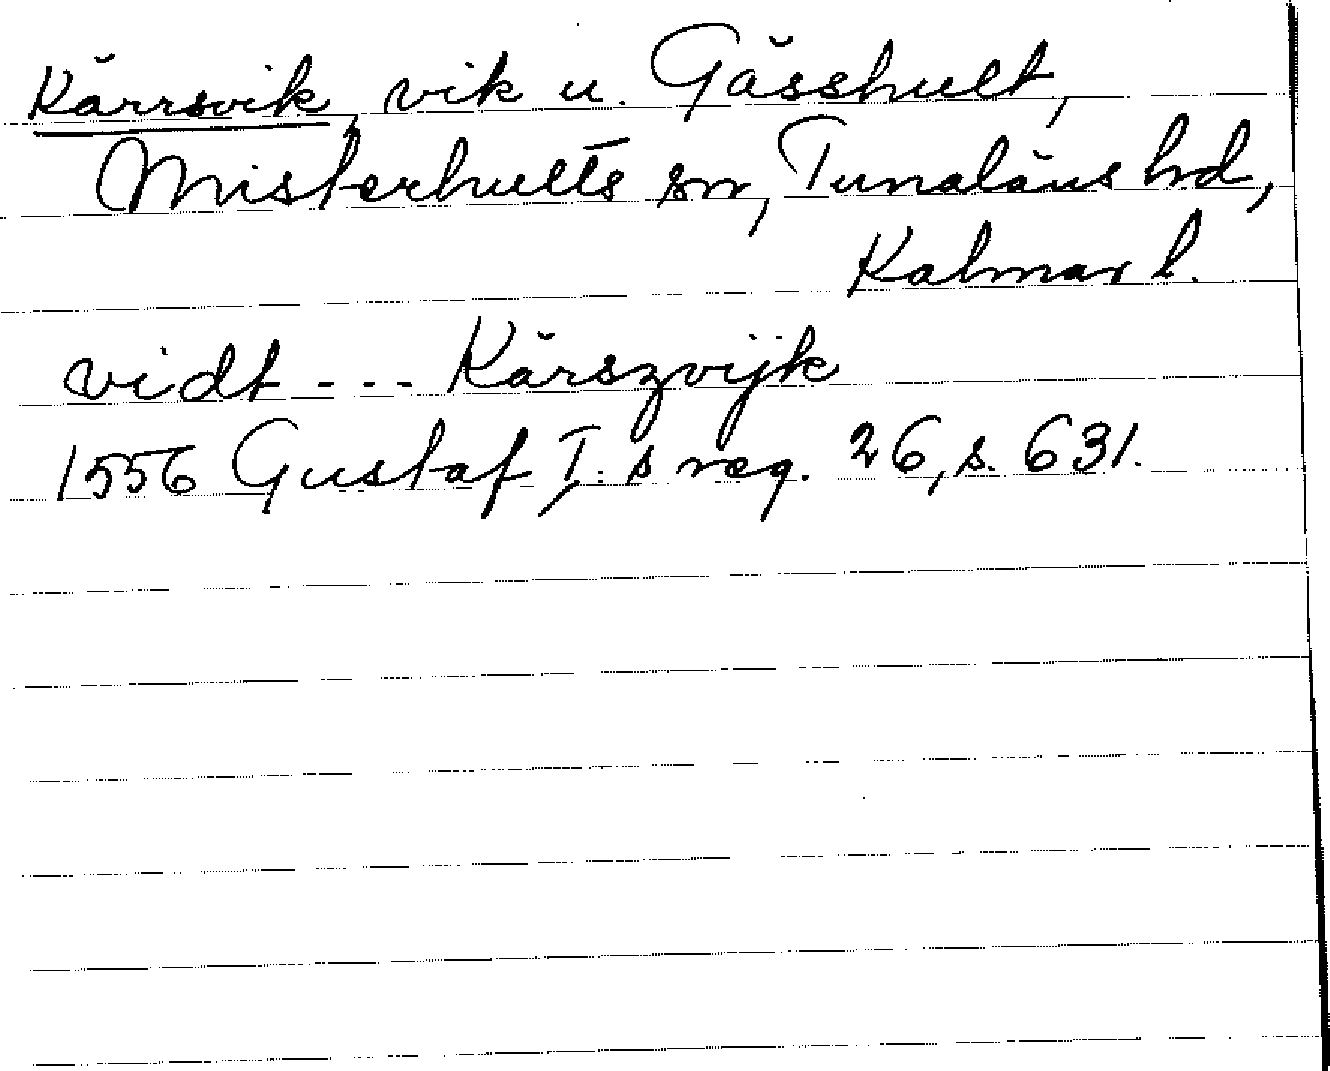 Kärrsvik, vik u. Gässhult,
Misterhults sn, Tunaläns hd,
Kalmar l.
vidt --- Kärszvijk
1556 Gustaf I:s reg. 26, s. 631.